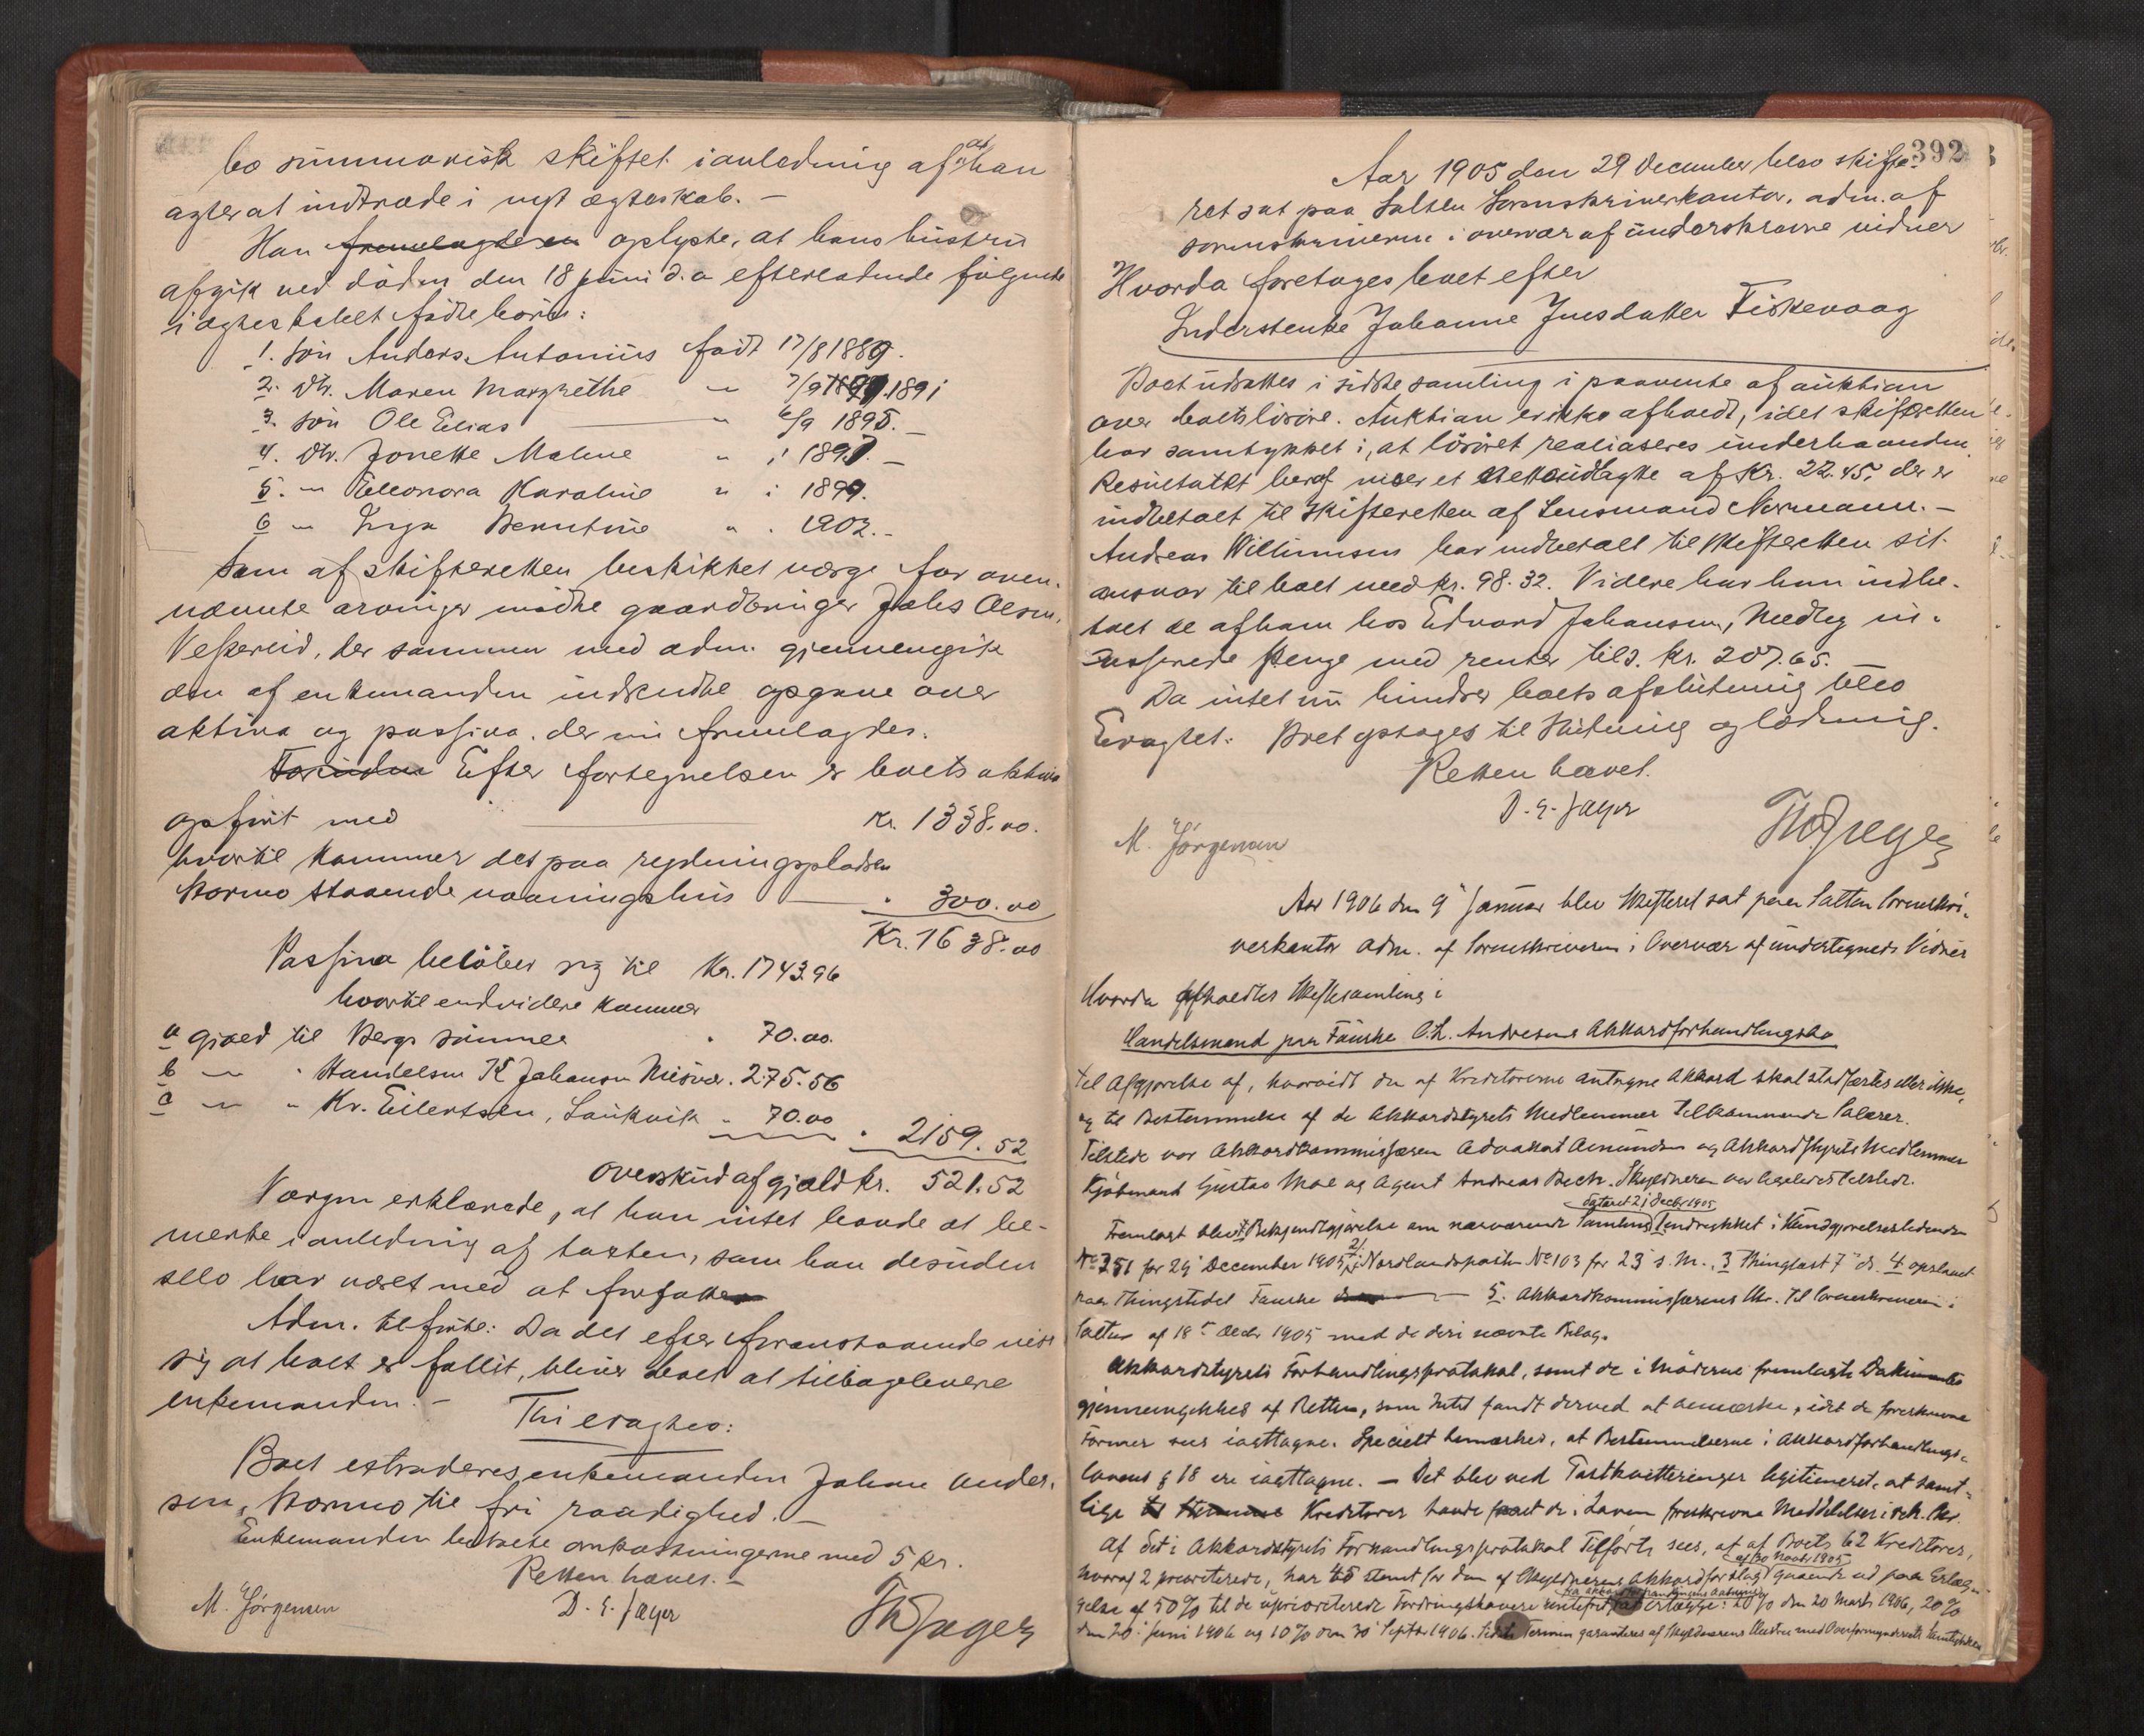 bo summarisk skiftet i anledning af at han
agter at indtræde i nyt ægteskab. –
Han fremlagde en oplyste, at hans hustru
afgik ved døden den 18 juni d.a efterladende følgende
i ægteskabet fødte børn:
1. søn Anders Antonius født 17/8 1889.
2. Dtr. Maren Margrethe " 7/9 1891
3. søn Ole Elias " 6/9 1895. –
4. Dtr. Jonette Malene " i 1897. –
5. " Eleonora Karoline " i 1899.
6 " Inga Berntine " " 1902. –
Som af skifteretten beskikket værge for oven-
nævnte arvinger mødte gaardbruger Johs Olsen,
Vestereid, der sammen med adm. gjennemgik
den af enkemanden indsendte opgave over
aktiva og passiva, der nu fremlagdes.
Foruden Efter fortegnelsen er boets aktiva
opført med Kr. 1338.00.
hvortil kommer det paa rydningspladsen
Stormo staaende vaaningshus " 300.00
Kr. 1638.00
Passiva beløber sig til Kr. 1743.96
hvortil endvidere kommer
a gjæld til Bergs sønner " 70.00.
b " " Handelsm K Johansen Misvær. 275.56
c " " Kr. Eilertsen, Laukvik " 70.00 " 2159.52
overskud af gjæld kr. 521.52
Værgen erklærede, at han intet havde at be-
merke i anledning af taxten, som han desuden
selv har været med at forfatte
Adm. tilførte: Da det efter foranstaaende viser
sig at boet er fallit, bliver boet at tilbagelevere
enkemanden. –
Thi eragtes:
Boet extraderes enkemanden Johan Ander-
sen, Stormo til fri raadighed. –
Enkemanden betalte omkostningerne med 5 kr.
Retten hævet. –
M. Jørgensen D. E. Jæger ThJæger
392
Aar 1905 den 29 December blev skifte-
ret sat paa Salten Sorenskriverkontor, adm. af
sorenskriveren i overvær af underskrevne vidner
Hvorda foretoges boet efter
Inderstenke Johanne Jensdatter Fiskevaag
Boet udsattes i sidste samling i paavente af auktion
over boets løsøre. Auktion er ikke afholdt, idet skifteretten
har samtykket i, at løsøret realiseres underhaanden.
Resultatet heraf viser et nettoudbytte af Kr. 22.45, der er
indbetalt til skifteretten af Lensmand Normann. –
Andreas Willumsen har indbetalt til skifteretten sit
ansvar til boet med kr. 98.32. Videre har han indbe-
talt de af ham hos Edvard Johansen, Nedleg in-
kasserede penge med renter tils. kr. 207.65. –
Da intet nu hindrer boets afslutning blev
Eragtet: Boet optages til slutning og lodning.
Retten hævet.
M. Jørgensen D. E. Jæger ThJæger
Aar 1906 den 9 Januar blev Skifteret sat paa Salten Sorenskri-
verkontor adm. af Sorenskriveren i Overvær af undertegnede Vidner
Hvorda afholdtes Skiftesamling i
Handelsmand paa Fauske O. L. Andresens Akkordforhandlingsbo
til Afgjørelse af, hvorvidt den af Kreditorerne antagne Akkord skal stadfæstes eller ikke,
og til Bestemmelse af de Akkordstyrets Medlemmer tilkommende Salærer.
Tilstede var Akkordkommissæren Advokat Amundsen og Akkordstyrets Medlemmer
Kjøbmand Gustav Moe og Agent Andreas Bech. Skyldneren var ligeledes tilstede.
dateret 21 Decbr 1905
Fremlagt blev 1 Bekjendtgjørelse om nærværende Samling indrykket i Kundgjørelsestidende
No 351 for 29 December 1905, 2 i Nordlandsposten No 103 for 23 s. M., 3 Thinglæst 7 ds. 4 opslaaet
paa Thingstedet Fauske 5. Akkordkommissærens Skr. til Sorenskriveren i
Salten af 18 Decbr 1905 med de deri nævnte Bilag.
Akkordstyrets Forhandlingsprotokol, samt de i Møderne fremlagte Dokumenter
gjennemgikkes af Retten, som Intet fandt derved at bemærke, idet de foreskrevne
Former sees iagttagne. Specielt bemærkes, at Bestemmelserne i Akkordforhandlings-
lovens § 18 ere iagttagne. – Det blev ved Postkvitteringer legitimeret, at samt-
lige Kreditorer havde faaet de i Loven foreskrevne Meddelelser i rek. Skr.
Af det i Akkordstyrets Forhandlingsprotokol Tilførte sees, at af Boets 62 Kreditorer,
af 30 Novbr 1905
hvoraf 2 prioriterede, har 45 stemt for den af Skyldnerens Akkordforslag gaaende ud paa Erlæg-
gelse af 50 % til de uprioriterede Fordringshavere rentefrit at erlægge: 20 % den 20 Marts 1906, 20 %
den 20 Juni 1906 og 10 % den 30 Septbr 1906. Sidste Termin garanteres af Skyldnerens Hustru med Overformynderiets Samtykke